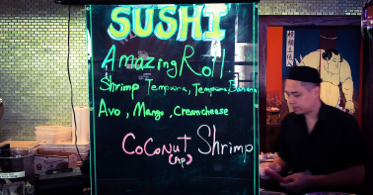 SUSHI
Amazing Roll
Shrimp Tempura, Tempura Banana
Avo, Mango, Creamcheese
Coconut Shrimp
(AP)